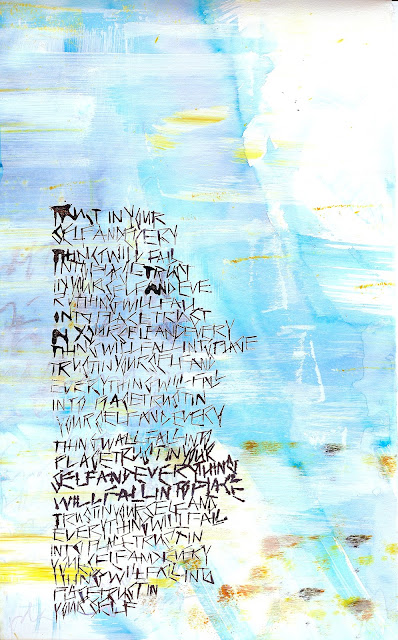 TRUST IN YOUR
SELF AND EVERY
THING WILL FALL
INTO PLACE TRUST
IN YOUR SELF AND EVE
RYTHING WILL FALL
INTO PLACE TRUST
IN YOUR SELF AND EVERY
THING WILL FALL INTO PLACE
TRUST IN YOUR SELF AND
EVERYTHING WILL FALL
INTO PLACE TRUST IN
YOUR SELF AND EVERY
THING WALL FALL INTO
PLACE TRUST IN YOUR
SELF AND EVERYTHING
WILL FALL INTO PLACE
TRUST IN YOUR SELF AND
EVERYTHING WILL FALL
INTO PLACE TRUST IN
YOUR SELF AND EVERY
THING WILL FALL INTO
PLACE TRUST IN
YOUR SELF